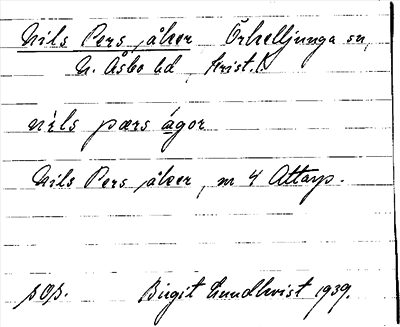 Nils Pers åker Örkelljunga sn,
N. Åsbo hd, Krist. l.
nils pærs ágor
Nils Pers åker, nr 4 Attarp.
pop. Birgit Lundkvist 1939.